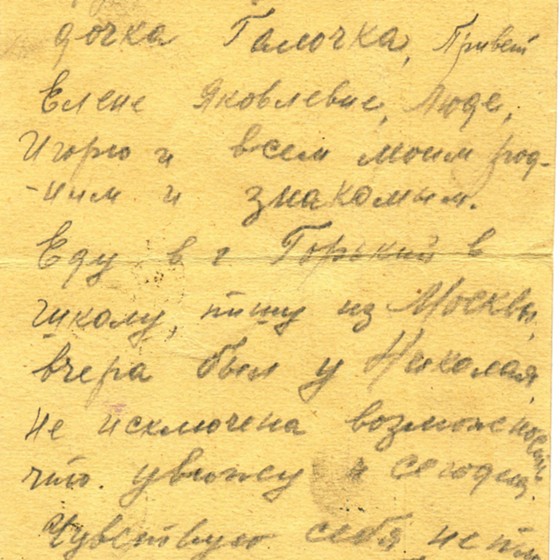 дочка Галочка, Привет
Елене Яковлевне, Люде,
Игорю и всем моим род-
-ным и знакомым.
Еду в г Горький в
школу, пишу из Москвы,
вчера был у Николая,
не исключена возможность
что увижу и сегодня.
Чувствую себя